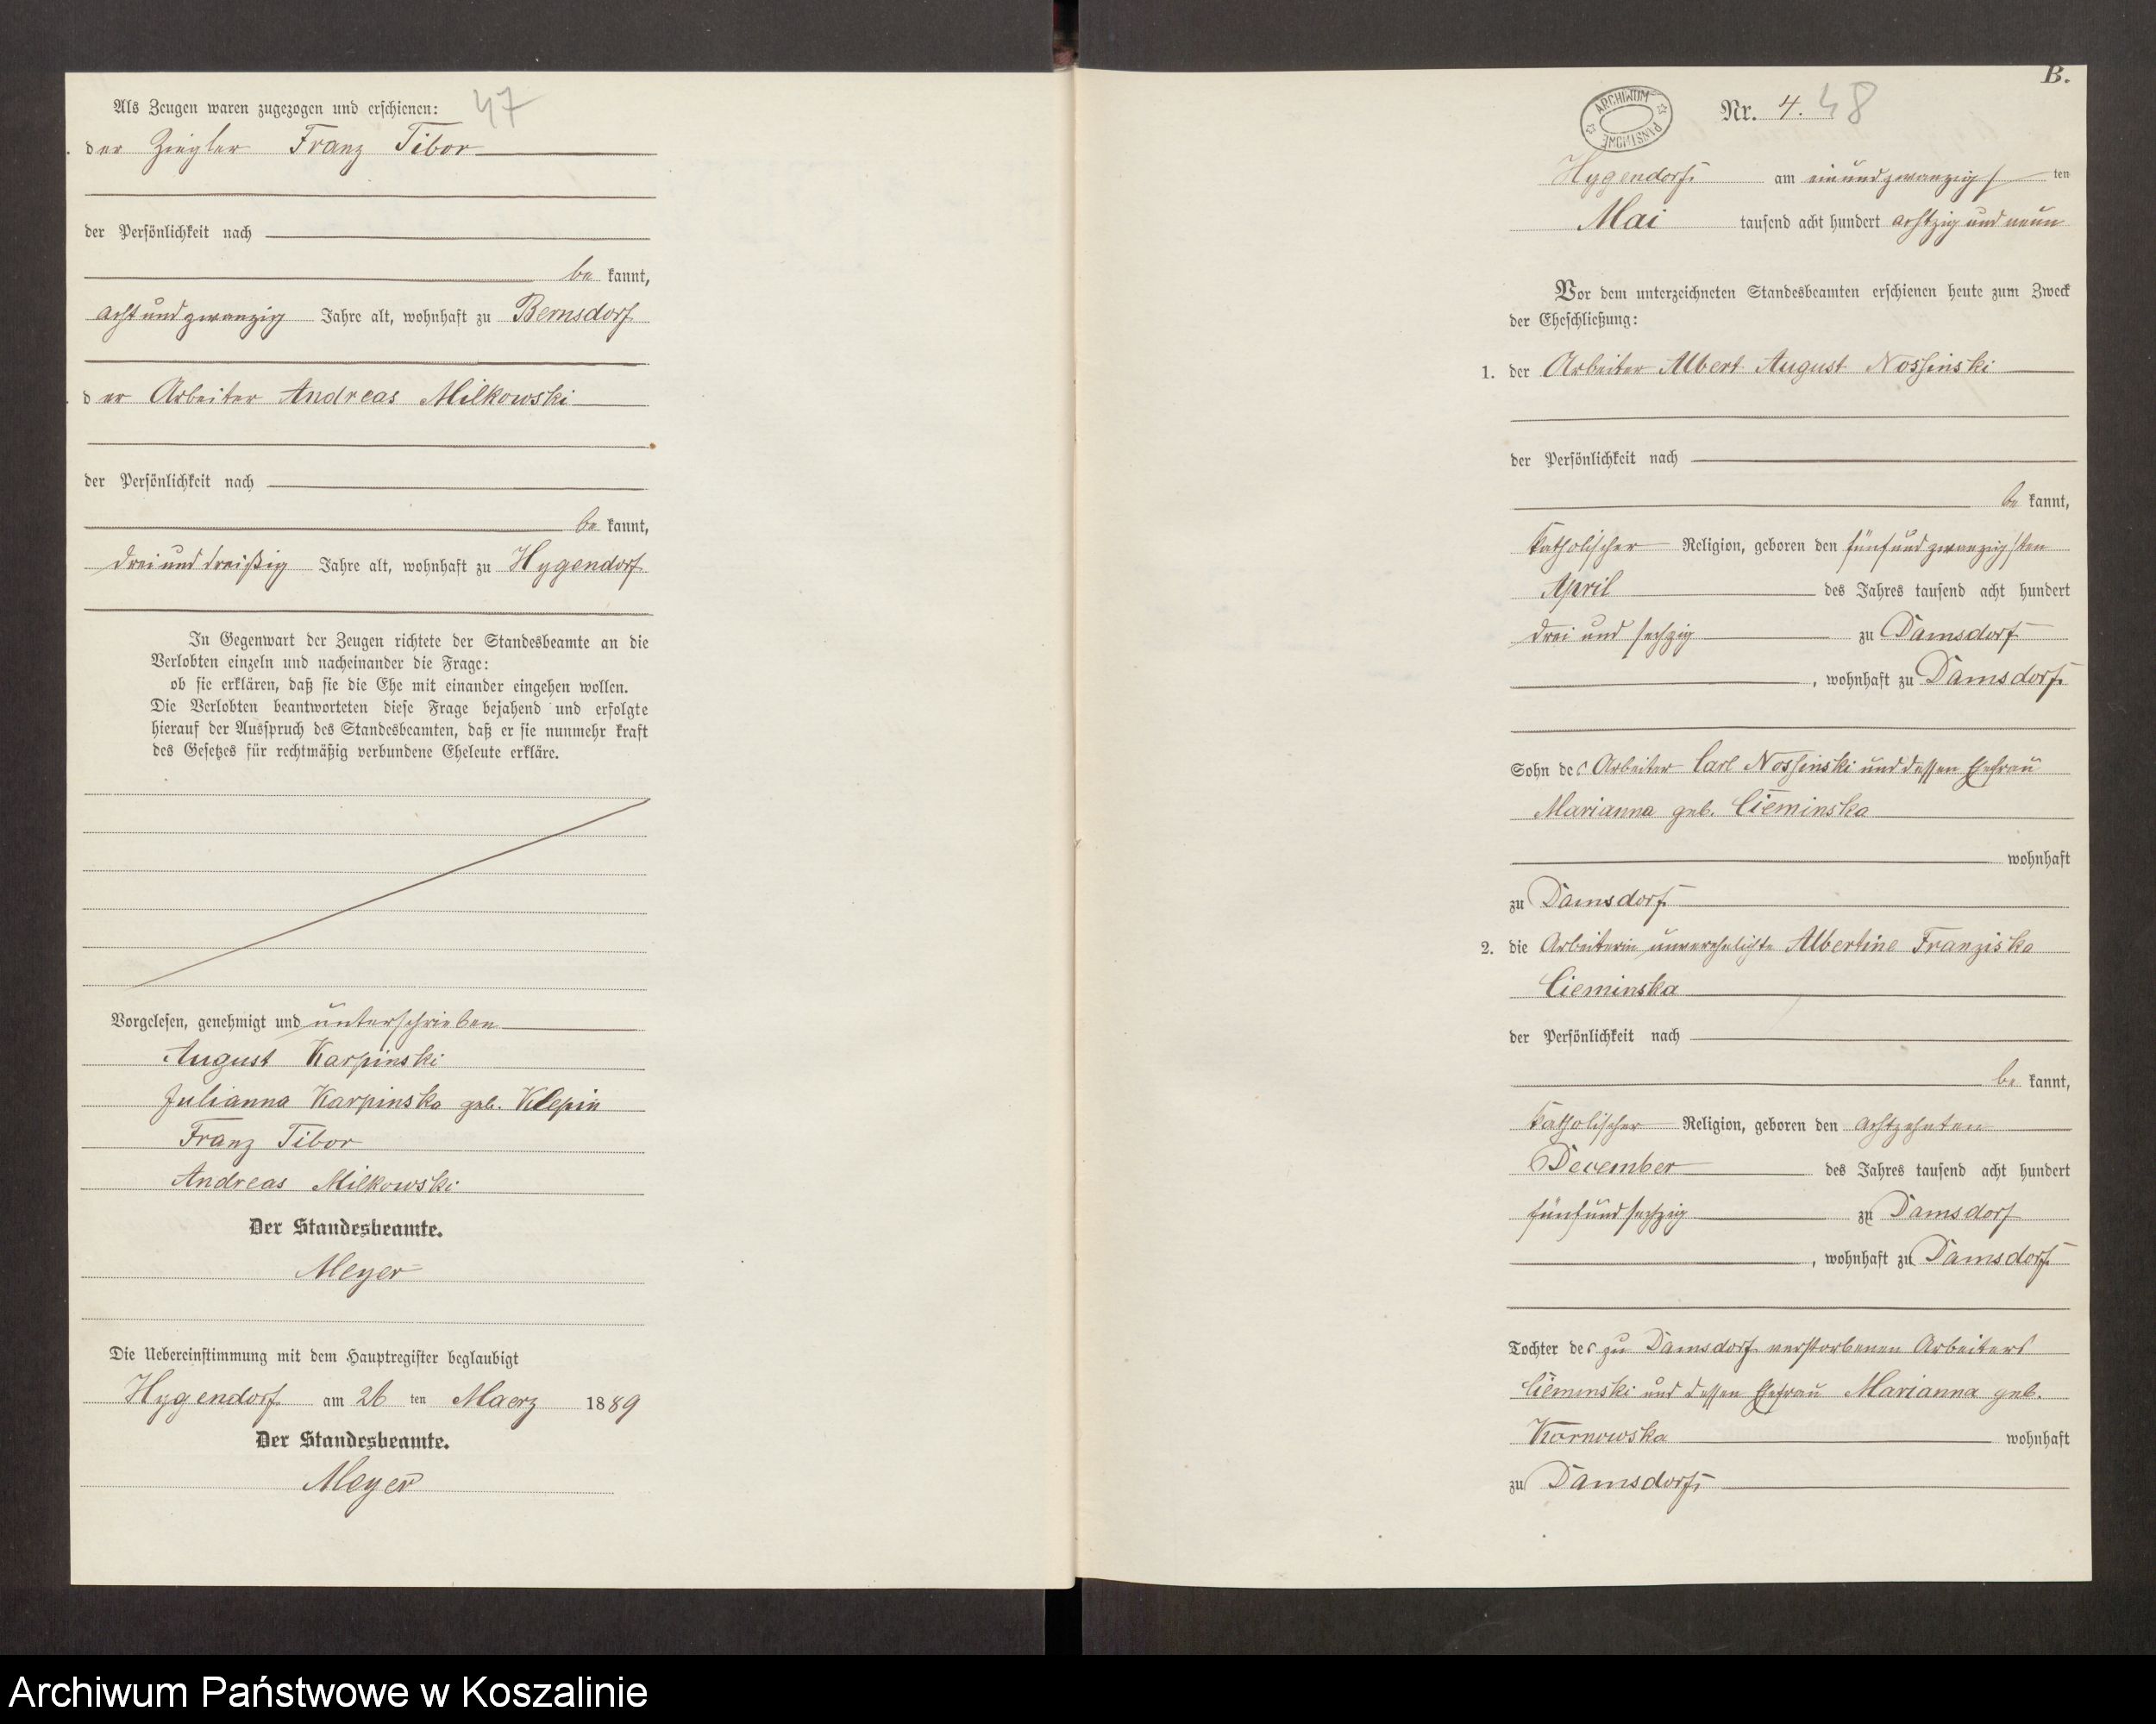 47
Als Zeugen waren zugezogen und erschienen:
der Ziegler Franz Tibor
der Persönlichkeit nach
be kannt,
acht und zwanzig Jahre alt, wohnhaft zu Bernsdorf
der Arbeiter Andreas Milkowski
der Persönlichkeit nach
be kannt,
drei und dreißig Jahre alt, wohnhaft zu Hygendorf
In Gegenwart der Zeugen richtete der Standesbeamte an die
Verlobten einzeln und nacheinander die Frage:
ob sie erklären, daß sie die Ehe mit einander eingehen wollen.
Die Verlobten beantworteten diese Frage bejahend und erfolgte
hierauf der Ausspruch des Standesbeamten, daß er sie nunmehr kraft
des Gesetzes für rechtmäßig verbundene Eheleute erkläre.
Vorgelesen, genehmigt und unterschrieben
August Karpinski
Julianna Karpinska geb. Klepin
Franz Tibor
Andreas Milkowski
Der Standesbeamte.
Meyer
Die Uebereinstimmung mit dem Hauptregister beglaubigt
Hygendorf am 26 ten Maerz 1889
Der Standesbeamte.
Meyer
B.
ARCHIWUM PAŃSTWOWE
Nr. 4. 48
Hygendorf am ein und zwanzigsten
Mai tausend acht hundert achtzig und neun
Vor dem unterzeichneten Standesbeamten erschienen heute zum Zweck
der Eheschließung:
1. der Arbeiter Albert August Nossinski
der Persönlichkeit nach
be kannt,
katholischer Religion, geboren den fünf und zwanzigsten
April des Jahres tausend acht hundert
drei und sechzig zu Damsdorf
, wohnhaft zu Damsdorf
Sohn des Arbeiter Carl Nossinski und dessen Ehefrau
Marianna geb. Cieminska
wohnhaft
zu Damsdorf
2. die Arbeiterin unverehelichte Albertine Franziska
Cieminska
der Persönlichkeit nach
be kannt,
katholischer Religion, geboren den achtzehnten
December des Jahres tausend acht hundert
fünf und sechzig zu Damsdorf
, wohnhaft zu Damsdorf
Tochter des zu Damsdorf verstorbenen Arbeiters
Cieminski und dessen Ehefrau Marianna geb.
Kornowska wohnhaft
zu Damsdorf
Archiwum Państwowe w Koszalinie